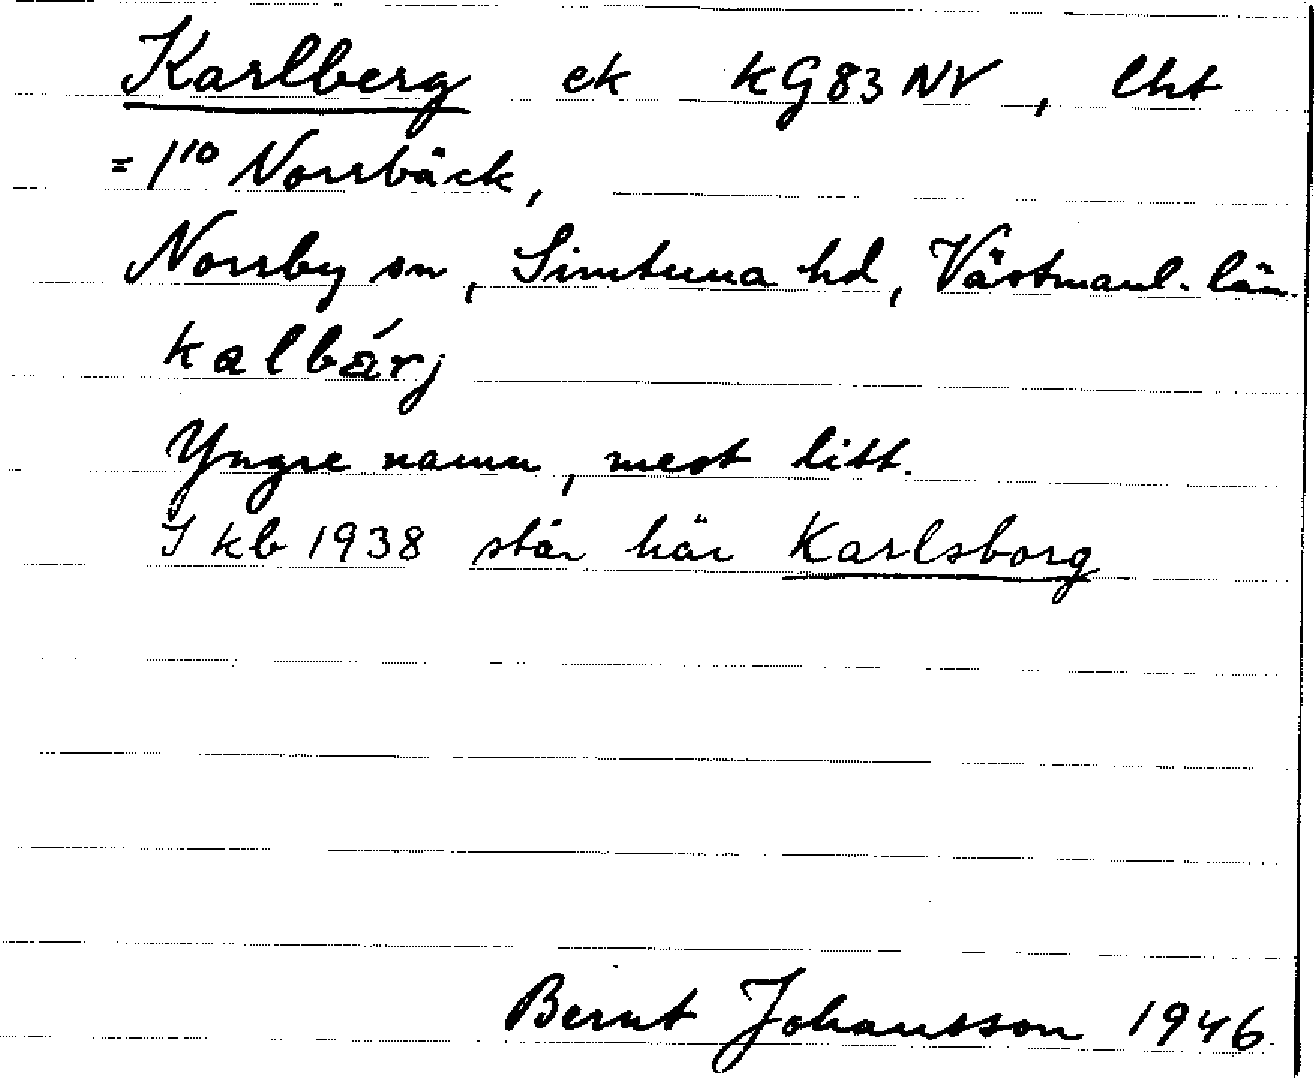 Karlberg ek kG83NV, lht
= 1¹⁰ Norrbäck,
Norrby sn, Simtuna hd, Västmanl. län.
kalbárj
Yngre namn, mest litt.
I kb 1938 står här Karlsborg
Bernt Johansson 1946